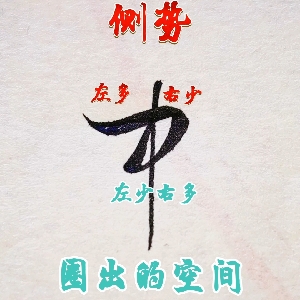 侧势
左多 右少
中
左少右多
圈出的空间